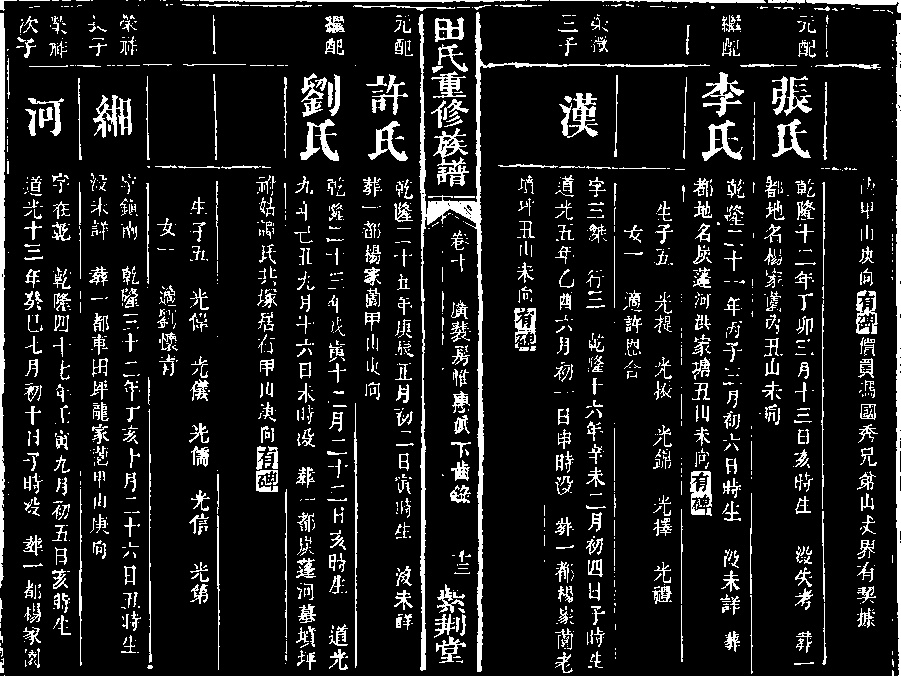 甲山庚向有碑價買馮國秀兄弟山夫界有契據
元配
張氏
乾隆十二年丁卯三月十三日亥時生 歿失考 葬一
都地名楊家薗內丑山未向
繼配
李氏
乾隆二十一年丙子二月初六日時生 歿未詳 葬
都地名炭蓬河洪家塘丑山未向有碑
生子五 光提 光拔 光錦 光擇 光禮
女一 適許恩含
榮徵
三子
漢
字三傑 行三 乾隆十六年辛未二月初四日子時生
道光五年乙酉六月初一日申時歿 葬一都楊家薗老
墳坪丑山未向有碑
田氏重修族譜
卷十 廣裝房惟 下齒錄
十三
紫荆堂
元配
許氏
乾隆二十五年庚辰正月初二日寅時生 歿未詳
葬一都楊家薗甲山庚向
繼配
劉氏
乾隆二十三年戊寅十二月二十二日亥時生 道光
九年己丑九月十六日未時歿 葬一都炭蓬河墓墳坪
祔姑譚氏共塚居右甲山庚向有碑
生子五 光偉 光儀 光儒 光信 光第
女一 適劉懷清
榮祥
長子
緗
字鎮南 乾隆三十二年丁亥十月二十六日丑時生
歿未詳 葬一都車田坪龍家薗甲山庚向
榮祥
次子
河
字在乾 乾隆四十七年壬寅九月初五日亥時生
道光十三年癸巳七月初十日子時歿 葬一都楊家園